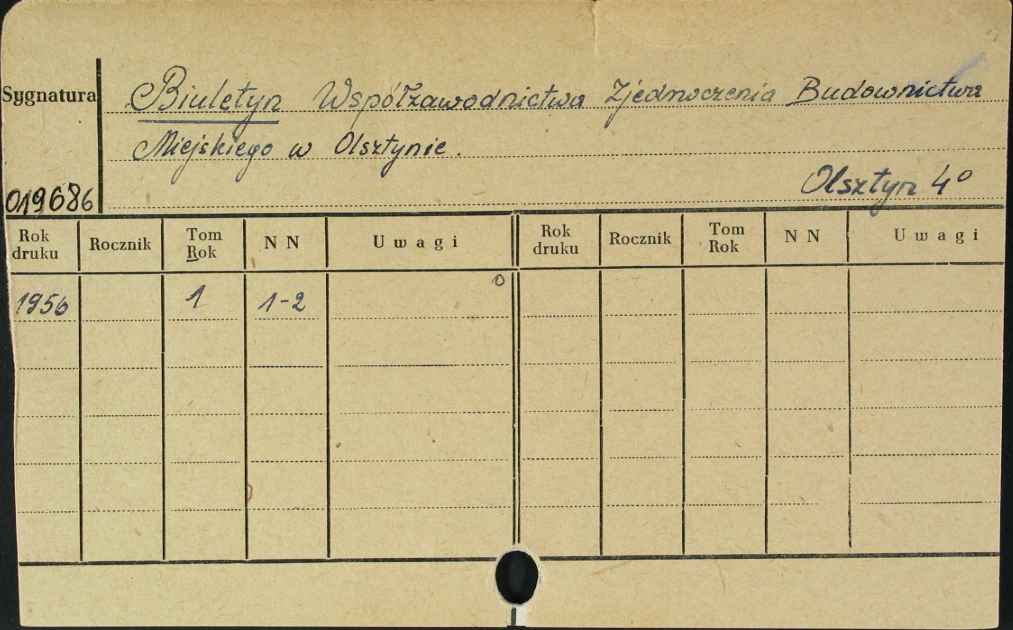 Sygnatura Biuletyn Współzawodnictwa Zjednoczenia Budownictwa
Miejskiego w Olsztynie.
019686 Olsztyn 4°
Rok druku Rocznik Tom Rok N N Uwagi Rok druku Rocznik Tom Rok N N Uwagi
1956 1 1-2 0